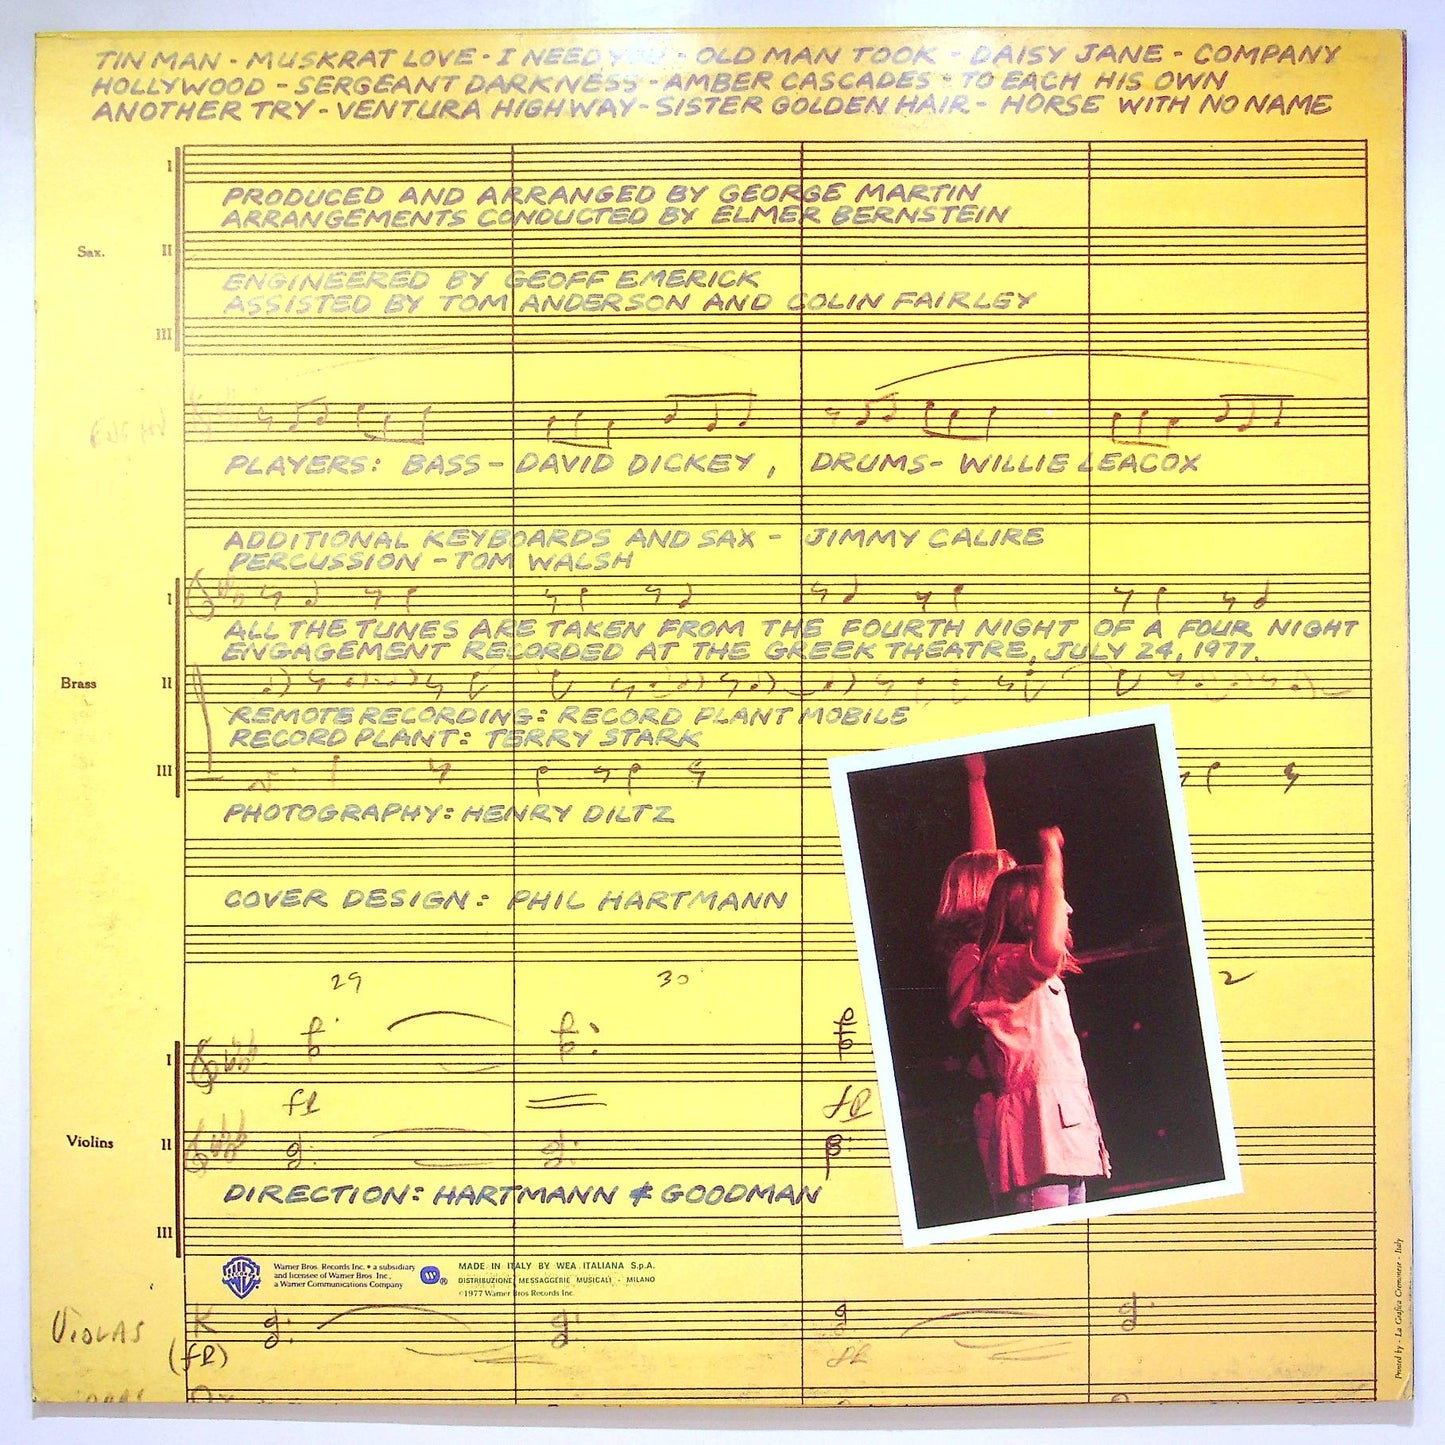 TIN MAN - MUSKRAT LOVE - I NEED YOU - OLD MAN TOOK - DAISY JANE - COMPANY
HOLLYWOOD - SERGEANT DARKNESS - AMBER CASCADES - TO EACH HIS OWN
ANOTHER TRY - VENTURA HIGHWAY - SISTER GOLDEN HAIR - HORSE WITH NO NAME
I
PRODUCED AND ARRANGED BY GEORGE MARTIN
ARRANGEMENTS CONDUCTED BY ELMER BERNSTEIN
Sax. II
ENGINEERED BY GEOFF EMERICK
ASSISTED BY TOM ANDERSON AND COLIN FAIRLEY
III
PLAYERS: BASS - DAVID DICKEY, DRUMS - WILLIE LEACOX
ADDITIONAL KEYBOARDS AND SAX - JIMMY CALIRE
PERCUSSION - TOM WALSH
I
ALL THE TUNES ARE TAKEN FROM THE FOURTH NIGHT OF A FOUR NIGHT
ENGAGEMENT RECORDED AT THE GREEK THEATRE, JULY 24, 1977.
Brass II
REMOTE RECORDING: RECORD PLANT MOBILE
RECORD PLANT: TERRY STARK
III
PHOTOGRAPHY: HENRY DILTZ
COVER DESIGN: PHIL HARTMANN
29 30 2
I
fp fp
Violins II
DIRECTION: HARTMANN & GOODMAN
III
Warner Bros. Records Inc. • a subsidiary
and licensee of Warner Bros. Inc.,
a Warner Communications Company
RECORDS
W ®
MADE IN ITALY BY WEA ITALIANA S.p.A.
DISTRIBUZIONE MESSAGGERIE MUSICALI - MILANO
©1977 Warner Bros Records Inc.
VIOLAS
(fp) fp
Printed by - La Grafica Cremonese - Italy